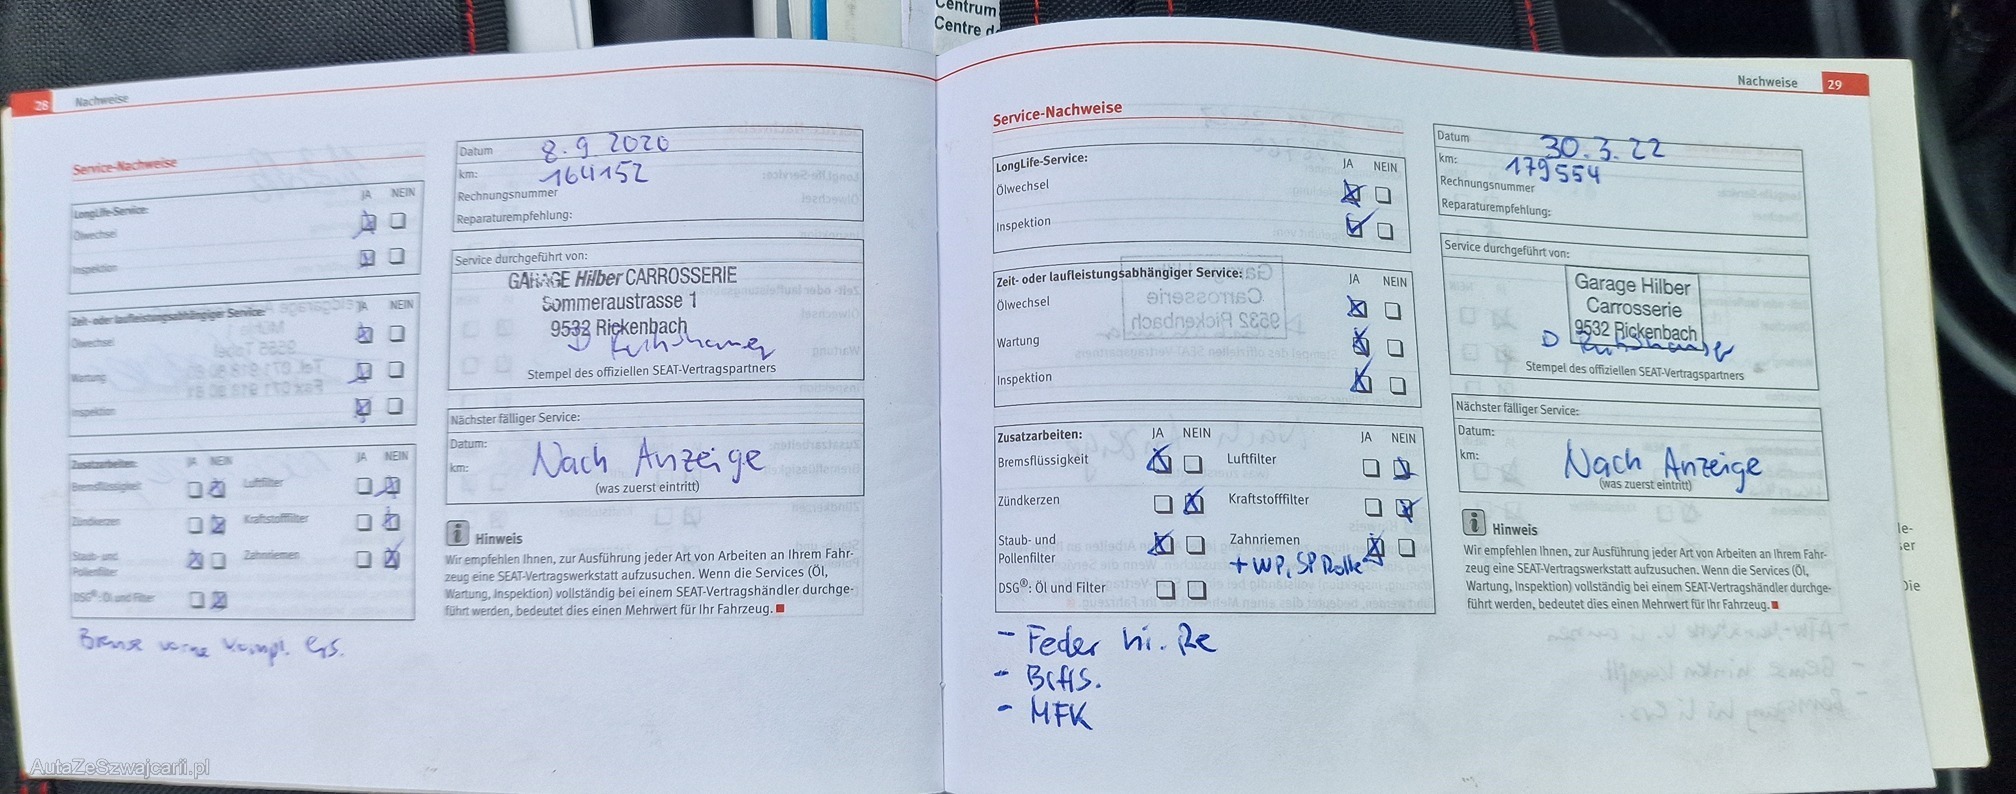 Centrum
Centre d
28 Nachweise
Service-Nachweise
JA NEIN
LongLife-Service:
Ölwechsel
Inspektion
Zeit- oder laufleistungsabhängiger Service:
JA NEIN
Ölwechsel
Wartung
Inspektion
Zusatzarbeiten: JA NEIN JA NEIN
Bremsflüssigkeit Luftfilter
Zündkerzen Kraftstofffilter
Staub- und Zahnriemen
Pollenfilter
DSG®: Öl und Filter
Bremse vorne kompl. ers.
Datum 8.9 2020
km: 164152
Rechnungsnummer
Reparaturempfehlung:
Service durchgeführt von:
GARAGE Hilber CARROSSERIE
Sommeraustrasse 1
9532 Rickenbach
Stempel des offiziellen SEAT-Vertragspartners
Nächster fälliger Service:
Datum:
km: Nach Anzeige
(was zuerst eintritt)
i Hinweis
Wir empfehlen Ihnen, zur Ausführung jeder Art von Arbeiten an Ihrem Fahr-
zeug eine SEAT-Vertragswerkstatt aufzusuchen. Wenn die Services (Öl,
Wartung, Inspektion) vollständig bei einem SEAT-Vertragshändler durchge-
führt werden, bedeutet dies einen Mehrwert für Ihr Fahrzeug.
Nachweise 29
Service-Nachweise
LongLife-Service:
JA NEIN
Ölwechsel
Inspektion
Zeit- oder laufleistungsabhängiger Service:
JA NEIN
Ölwechsel
Wartung
Inspektion
Zusatzarbeiten: JA NEIN JA NEIN
Bremsflüssigkeit Luftfilter
Zündkerzen Kraftstofffilter
Staub- und Zahnriemen
Pollenfilter + WP, SP Rolle
DSG®: Öl und Filter
- Feder hi. Re
- MFK
Datum 30.3.22
km: 179554
Rechnungsnummer
Reparaturempfehlung:
Service durchgeführt von:
Garage Hilber
Carrosserie
9532 Rickenbach
Stempel des offiziellen SEAT-Vertragspartners
Nächster fälliger Service:
Datum:
km: Nach Anzeige
(was zuerst eintritt)
i Hinweis
Wir empfehlen Ihnen, zur Ausführung jeder Art von Arbeiten an Ihrem Fahr-
zeug eine SEAT-Vertragswerkstatt aufzusuchen. Wenn die Services (Öl,
Wartung, Inspektion) vollständig bei einem SEAT-Vertragshändler durchge-
führt werden, bedeutet dies einen Mehrwert für Ihr Fahrzeug.
AutaZeSzwajcarii.pl